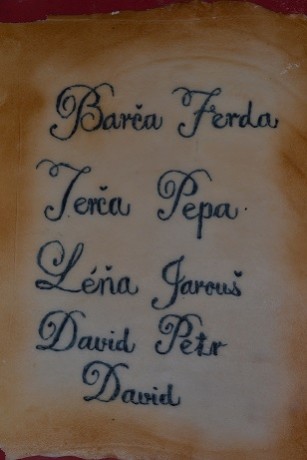 Barča Ferda
Terča Pepa
Léňa Jarouš
David Petr
David